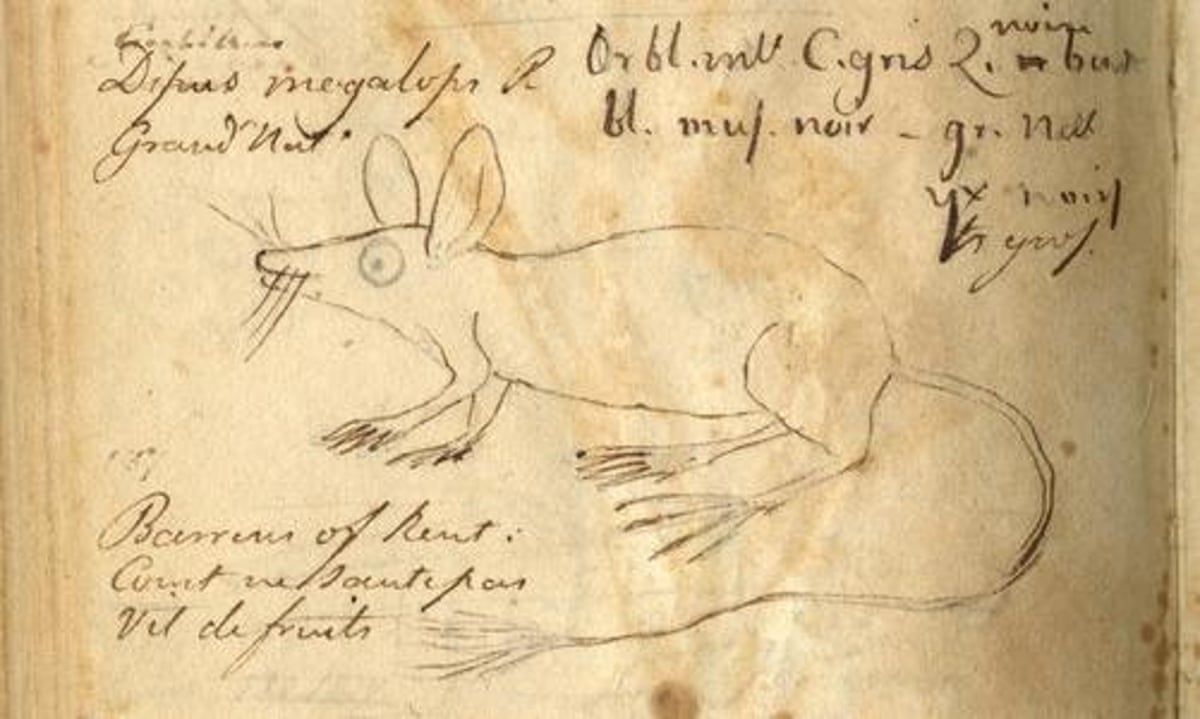 Gerbillus
Dipus megalops R
Grand Nat
Or bl. C. gris Q. noire
bl. mus. noir - gr. Nat
yx noirs
Barrens of Kent:
Court ne Saute pas
Vit de fruits